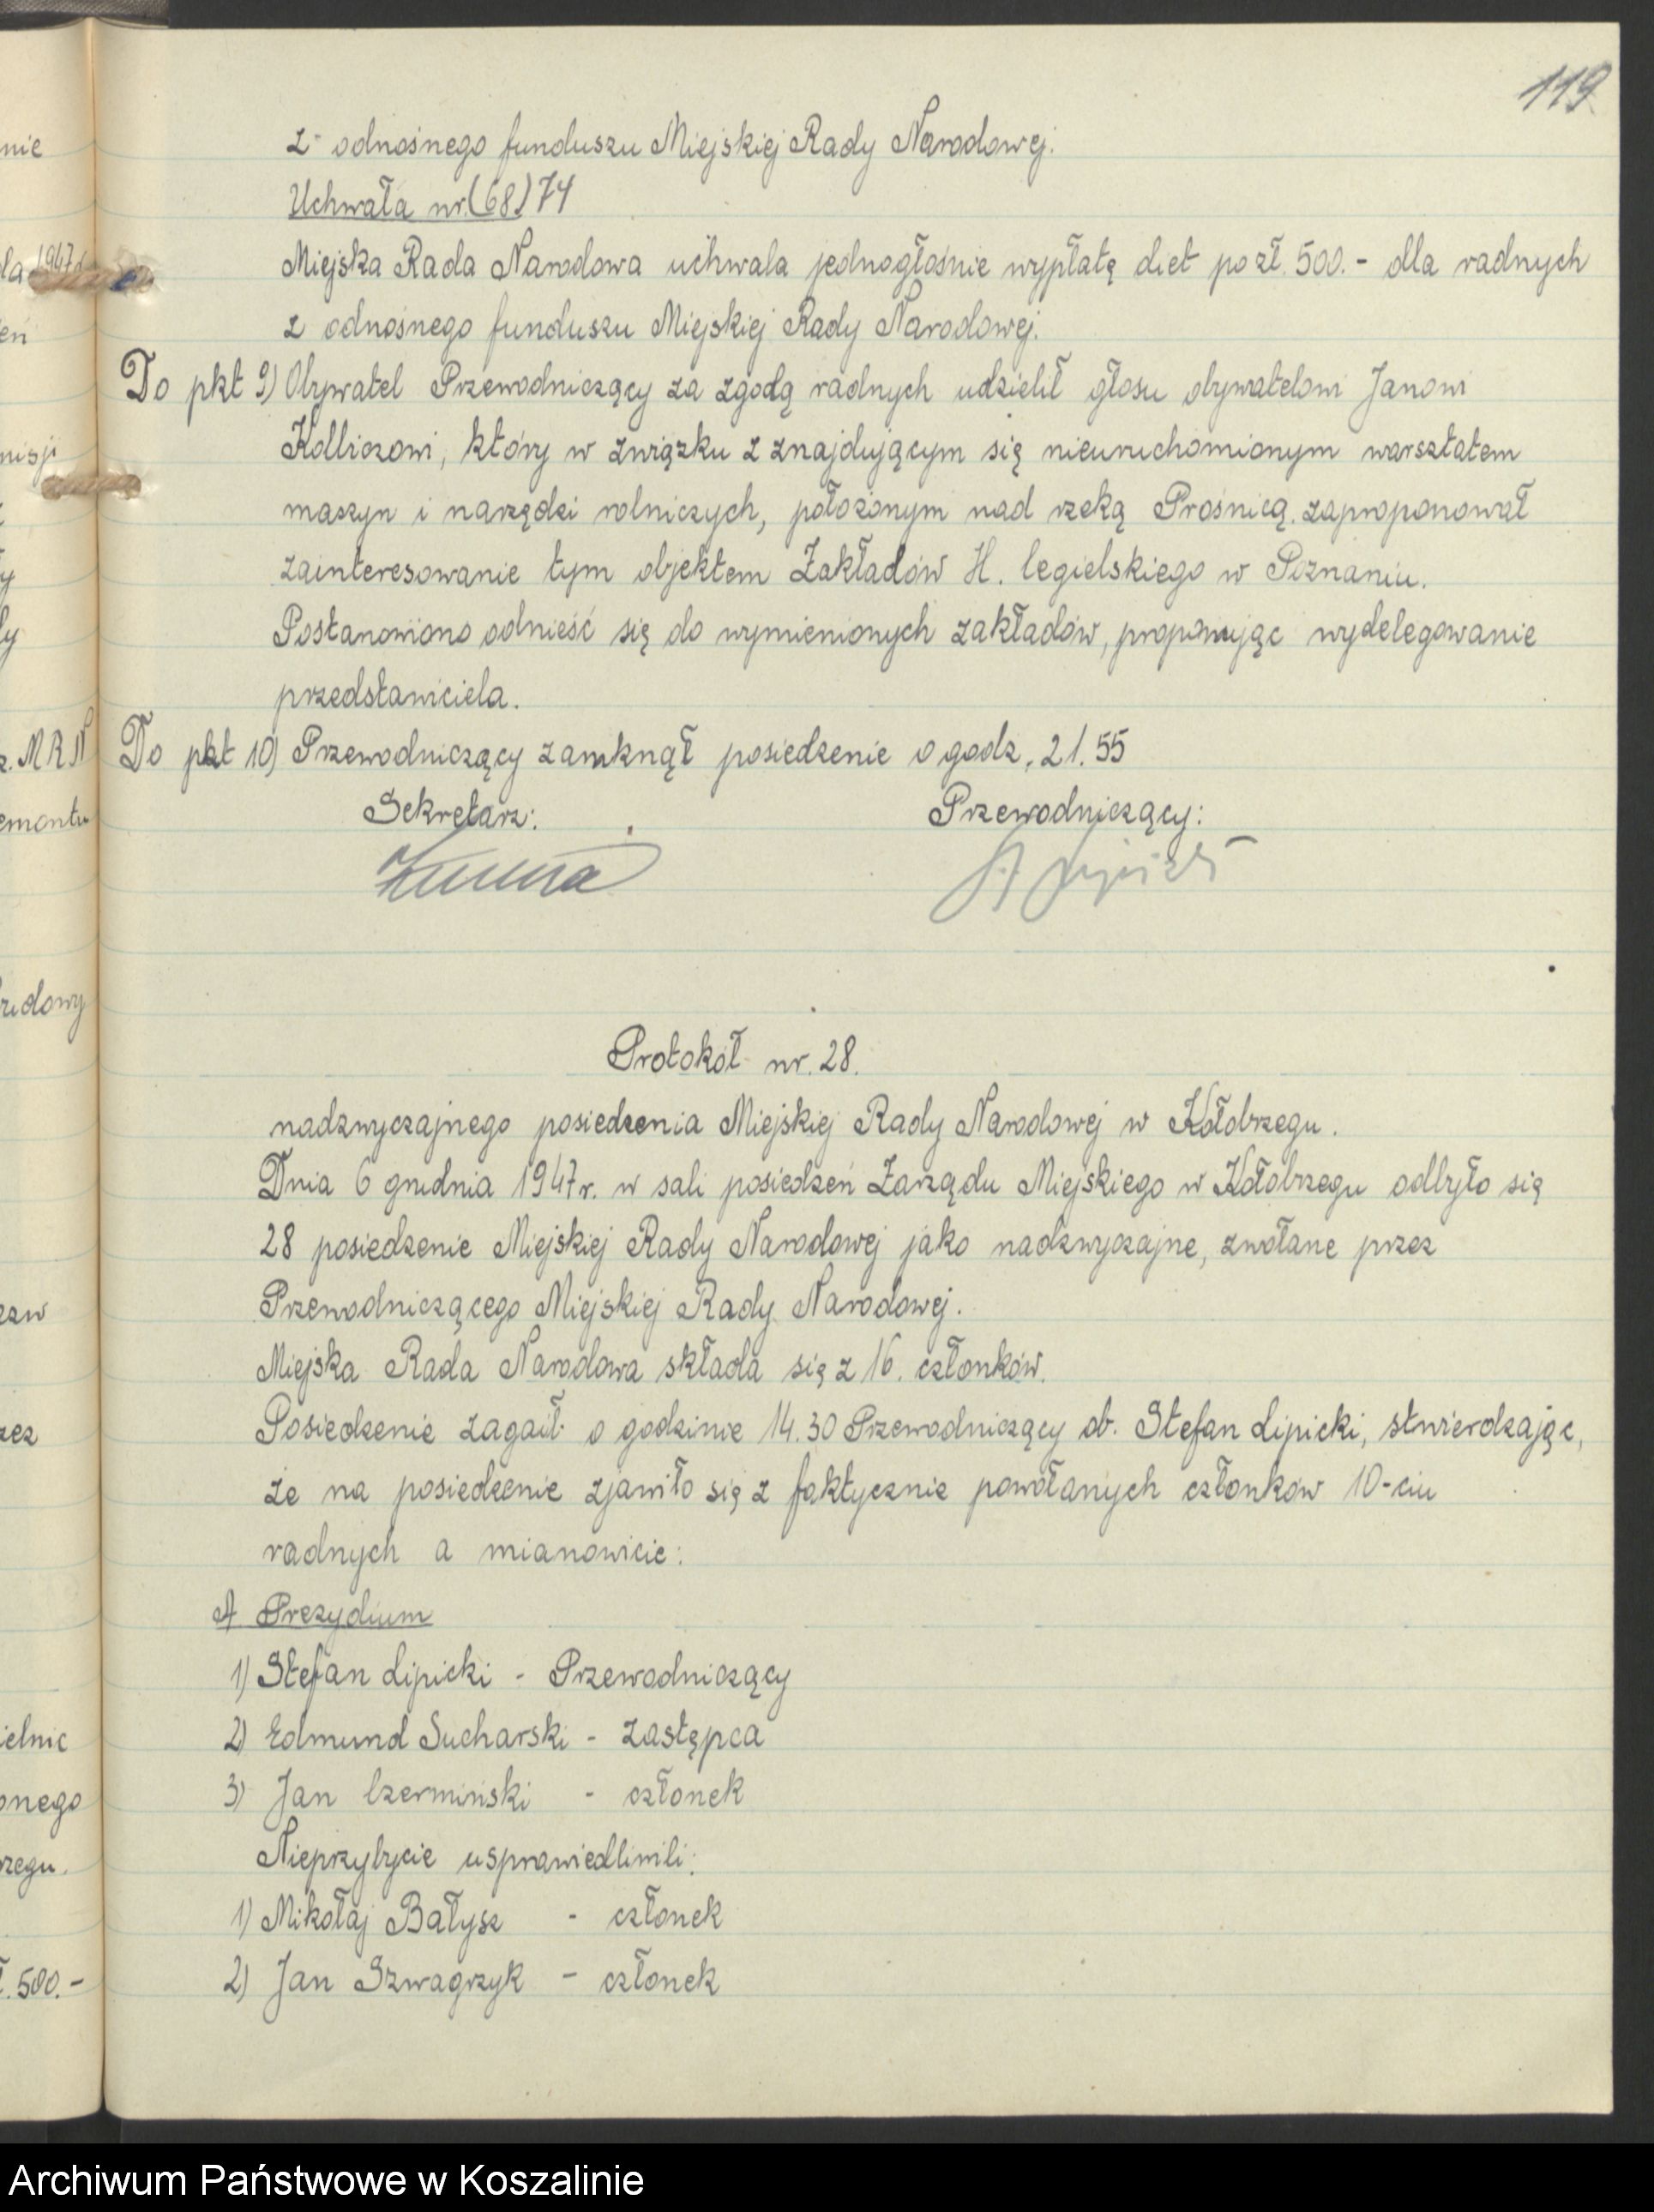 119
z odnośnego funduszu Miejskiej Rady Narodowej.
Uchwała nr.(68) 74
Miejska Rada Narodowa uchwala jednogłośnie wypłatę diet po zł. 500.- dla radnych
z odnośnego funduszu Miejskiej Rady Narodowej.
Do pkt 9) Obywatel Przewodniczący za zgodą radnych udzielił głosu obywatelowi Janowi
który w związku z znajdującym się nieuruchomionym warsztatem
maszyn i narzędzi rolniczych, położonym nad rzeką Prośnicą. zaproponował
zainteresowanie tym objektem Zakładów H. Cegielskiego w Poznaniu.
Postanowiono odnieść się do wymienionych zakładów, proponując wydelegowanie
przedstawiciela.
Do pkt 10) Przewodniczący zamknął posiedzenie o godz. 21.55
Sekretarz: Przewodniczący:
Protokół nr. 28.
nadzwyczajnego posiedzenia Miejskiej Rady Narodowej w Kołobrzegu.
Dnia 6 grudnia 1947 r. w sali posiedzeń Zarządu Miejskiego w Kołobrzegu odbyło się
28 posiedzenie Miejskiej Rady Narodowej jako nadzwyczajne, zwołane przez
Przewodniczącego Miejskiej Rady Narodowej.
Miejska Rada Narodowa składa się z 16. członków.
Posiedzenie zagaił o godzinie 14.30 Przewodniczący ob. Stefan Lipicki, stwierdzając,
że na posiedzenie zjawiło się z faktycznie powołanych członków 10-ciu
radnych a mianowicie:
A. Prezydium
1) Stefan Lipicki - Przewodniczący
2) Edmund Sucharski - zastępca
3) Jan Czermiński - członek
Nieprzybycie usprawiedliwili:
1) Mikołaj Bałysz - członek
2) Jan Szwagrzyk - członek
Archiwum Państwowe w Koszalinie